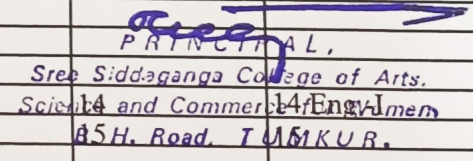 PRINCIPAL.
Sree Siddaganga College of Arts.
Science and Commerce for Women
14 14 Eng-I
B.H. Road, TUMKUR.
15 15